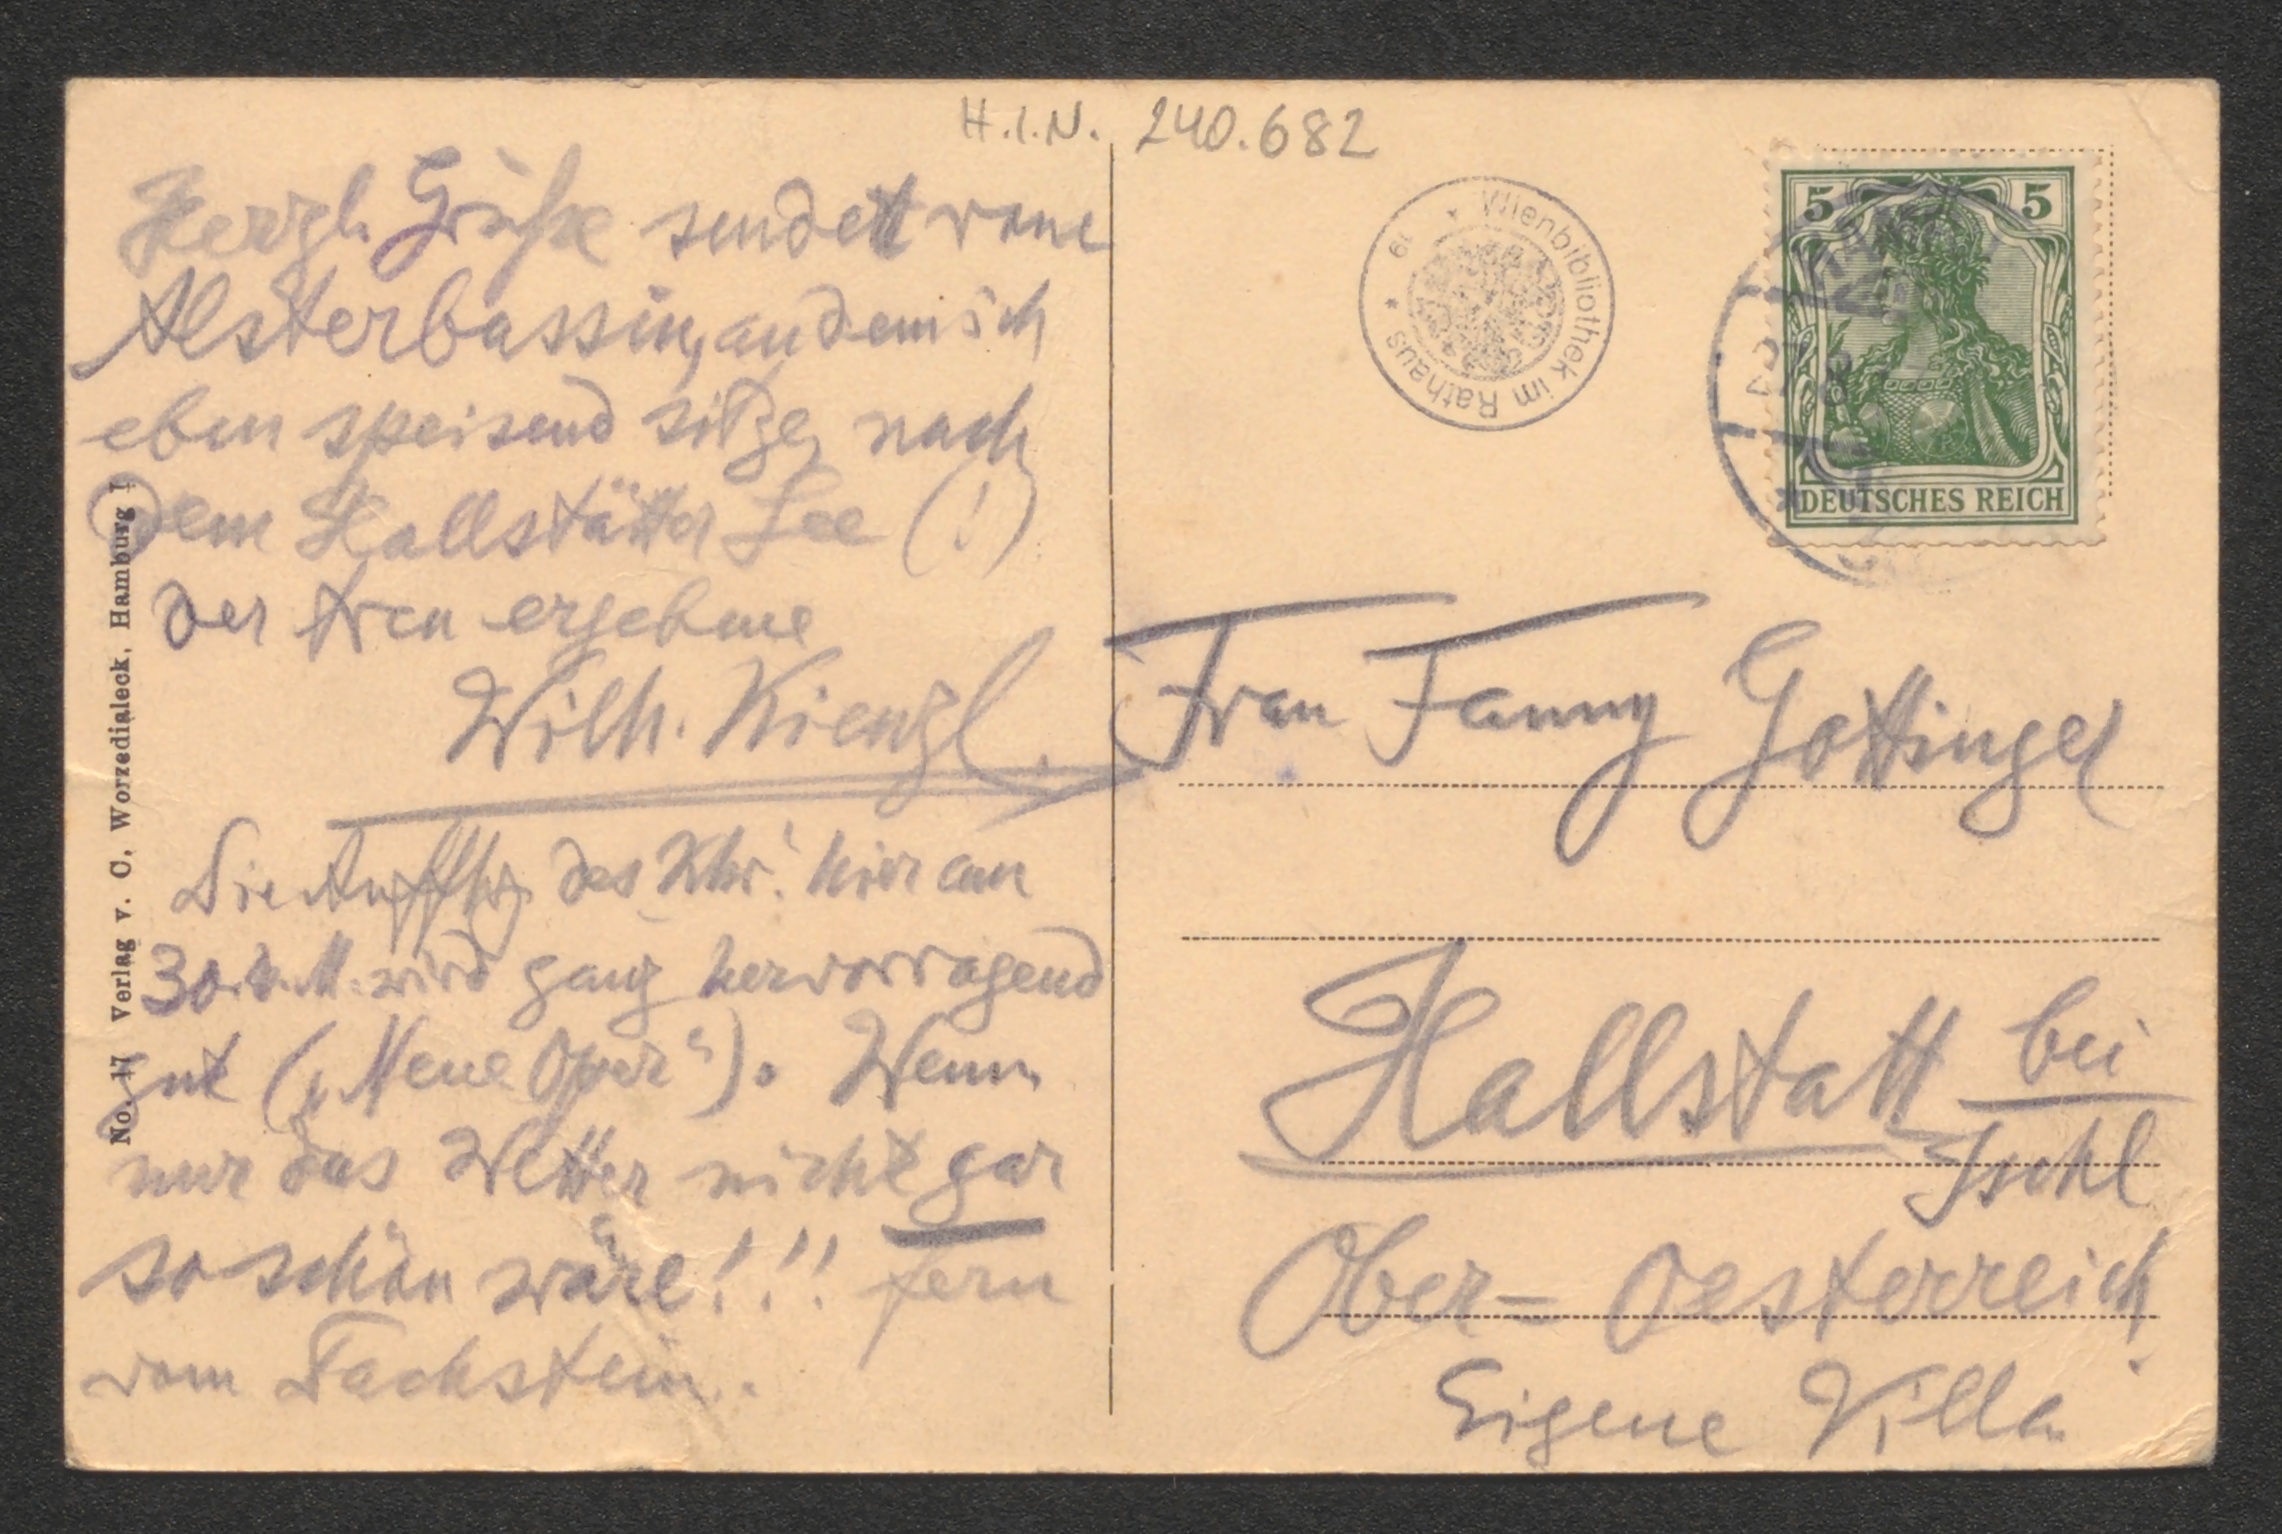 H.I.N. 240.682
Herzl. Grüße sendet vom
Alsterbassin, an dem ich
eben speisend sitze, nach
dem Hallstätter See (!)
der treu ergebene
Wilh. Kienzl.
Die Auffhg. des Khr. hier am
30. d. M. wird ganz hervorragend
gut („Neue Oper“). Wenn
nur das Wetter nicht gar
so schön wäre!!! fern
vom Dachstein.
No. 17 Verlag v. C. Worzedialeck, Hamburg 1
Wienbibliothek im Rathaus
5 5
DEUTSCHES REICH
Frau Fanny Gottinger
Hallstatt bei
Ischl
Ober-Oesterreich.
Eigene Villa.